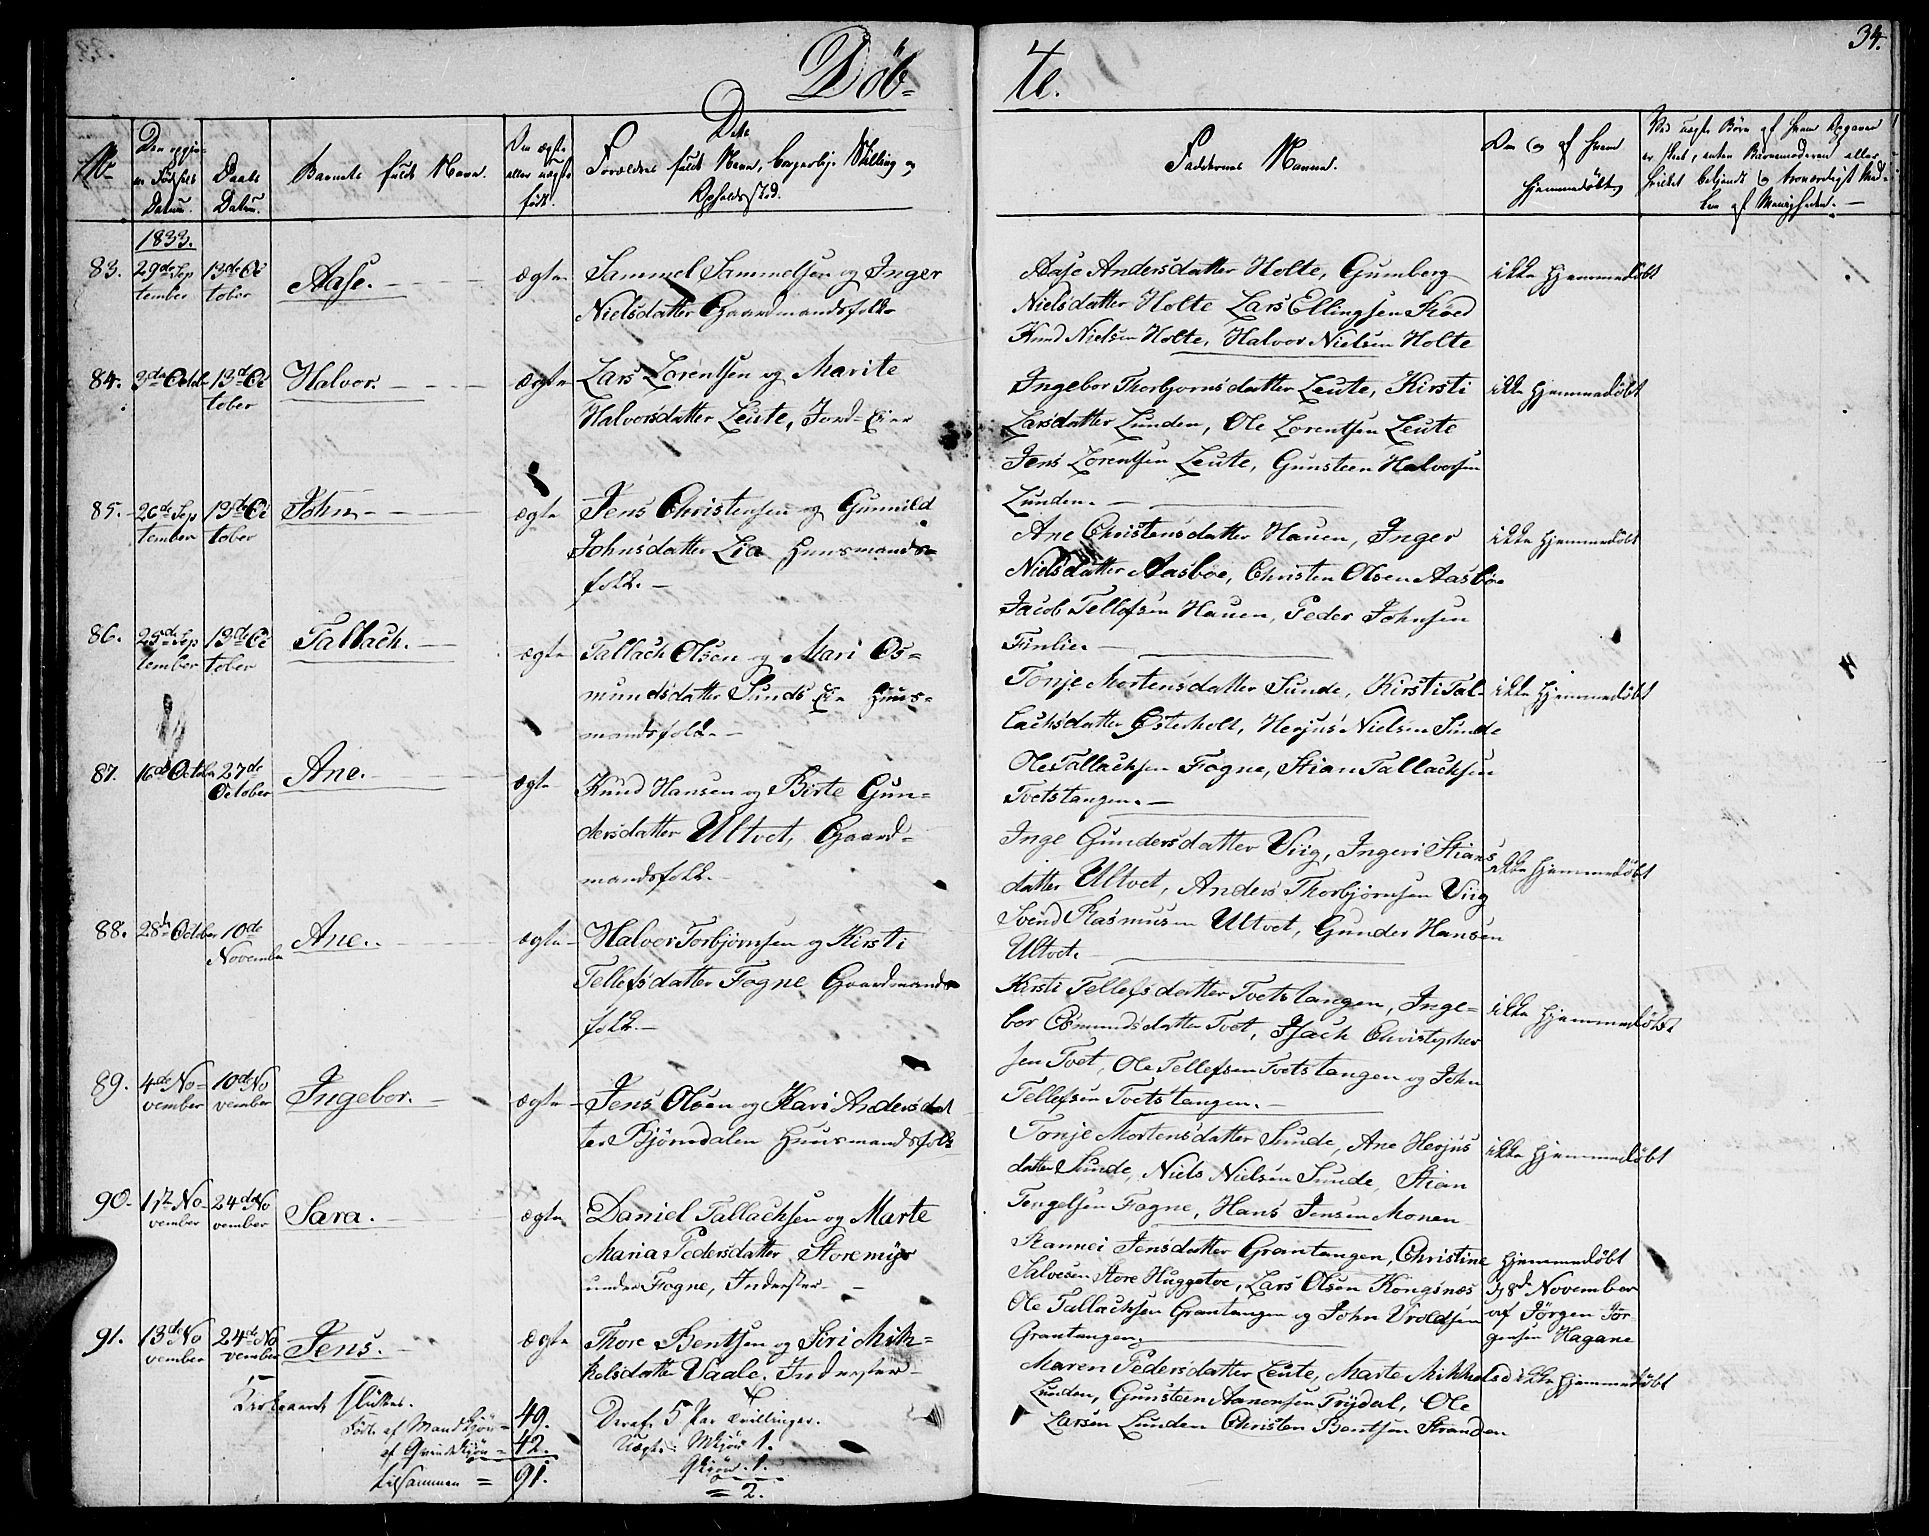 Döb-
te.
34.
No
Den opgivne Fødsels Datum.
Daabs Datum.
Barnets fulde Navn.
Om ægte eller uægte født.
Dets Forældres fulde Navn, borgerlige Stilling og Opholdssted.
Faddernes Navne.
Om og af hvem hjemmedøbt
1833.
83.
29de Sep
tember
13de Oc
tober
Aase.
ægte
Sammel Sammelsen og Inger
Nielsdatter Gaardmandsfolk
Aase Andersdatter Holte, Gumberg
Nielsdatter Holte Lars Ellingsen Röed
Knud Nielsen Holte, Halvor Nielsen Holte
ikke hjemmedøbt
84.
3de Octob
13de Oc
tober
Halvor.
ægte
Lars Lorentsen og Marite
Halvorsdatter Leute, Jord-Eier
Ingebor Thorbjornsdatter Leute, Kirsti
Larsdatter Lunden, Ole Lorentsen Leute
Jens Lorentsen Leute, Gunsteen Halvorsen
Lunden.
ikke hjemmedøbt
85.
26de Sep
tember
13de Oc
tober
John
ægte
Jens Christensen og Gunnild
Johnsdatter Lia Huusmands-
folk.
Ane Christensdatter Hauen, Inger
Nielsdatter Aasböe, Christen Olsen Aasböe
Jacob Tellefsen Hauen, Peder Johnsen
Finlie.
ikke hjemmedøbt
86.
25de Sep
tember
13de Oc
tober
Tallach.
ægte
Tallach Olsen og Mari Os-
mundsdatter Sunds Eie Huus-
mandsfolk.
Tonje Mortensdatter Sunde, Kirsti Tal-
lachsdatter Østerholt, Herjus Nielsen Sunde
Ole Tallachsen Fogne, Stian Tallachsen
Tvetstangen.
ikke hjemmedøbt
87.
16de Octob
27de
October
Ane.
ægte
Knud Hansen og Birte Gun-
dersdatter Ultvet, Gaard-
mandsfolk.
Inge Gundersdatter Viig, Ingeri Stians
datter Ultvet, Anders Thorbjørnsen Viig
Svend Rasmusen Ultvet, Gunder Hansen
Ultvet.
ikke hjemmedøbt
88.
28de October
10de
November
Ane.
ægte
Halvor Torbjørnsen og Kirsti
Tellefsdatter Fogne Gaardmands
folk.
Kirsti Tellefsdatter Tvetstangen, Inge-
bor Osmundsdatter Tvet, Isach Christopher
sen Tvet, Ole Tellefsen Tvetstangen og John
Tellefsen Tvetstangen.
ikke hjemmedøbt
89.
4de No-
vember
10de No
vember
Ingebor.
ægte
Jens Olsen og Kari Andersdat
ter Bjørndalen Huusmandsfolk
Tonje Mortensdatter Sunde, Ane Herjus
datter Sunde, Niels Nielsen Sunde, Stian
Tengelsen Fogne, Hans Jensen Monen
ikke hjemmedøbt
90.
17 No
vember
24de No
vember
Sara.
ægte
Daniel Tallachsen og Marte
Maria Pedersdatter Storemyr
under Fogne, Inderster
Rannei Jensdatter Grantangen, Christine
Salvesen Store Huggetve, Lars Olsen Kongsnæs
Ole Tallachsen Grantangen og John Vroldsen
Grantangen.
hjemmedøbt
18de November
af Jörgen Jör
gensen Hagane
91.
13de No
vember
24de No
vember
Jens.
ægte
Thore Bentsen og Siri Mik-
kelsdatter Vaale. Inderster
Maren Pedersdatter Leute, Marte Mikkelsd
Lunden, Gunsteen Aanonsen Trydal, Ole
Larsen Lunden Christen Bentsen Stranden
ikke hjemmedøbt
Kirkeaaret sluttes.
Födte af Mandkjön 49.
af Qvindekjön = 42.
tilsammen = 91.
Deraf 5 Par Tvillinger.
Uægte: Mkjön 1.
Qkjön. 1.
= 2.